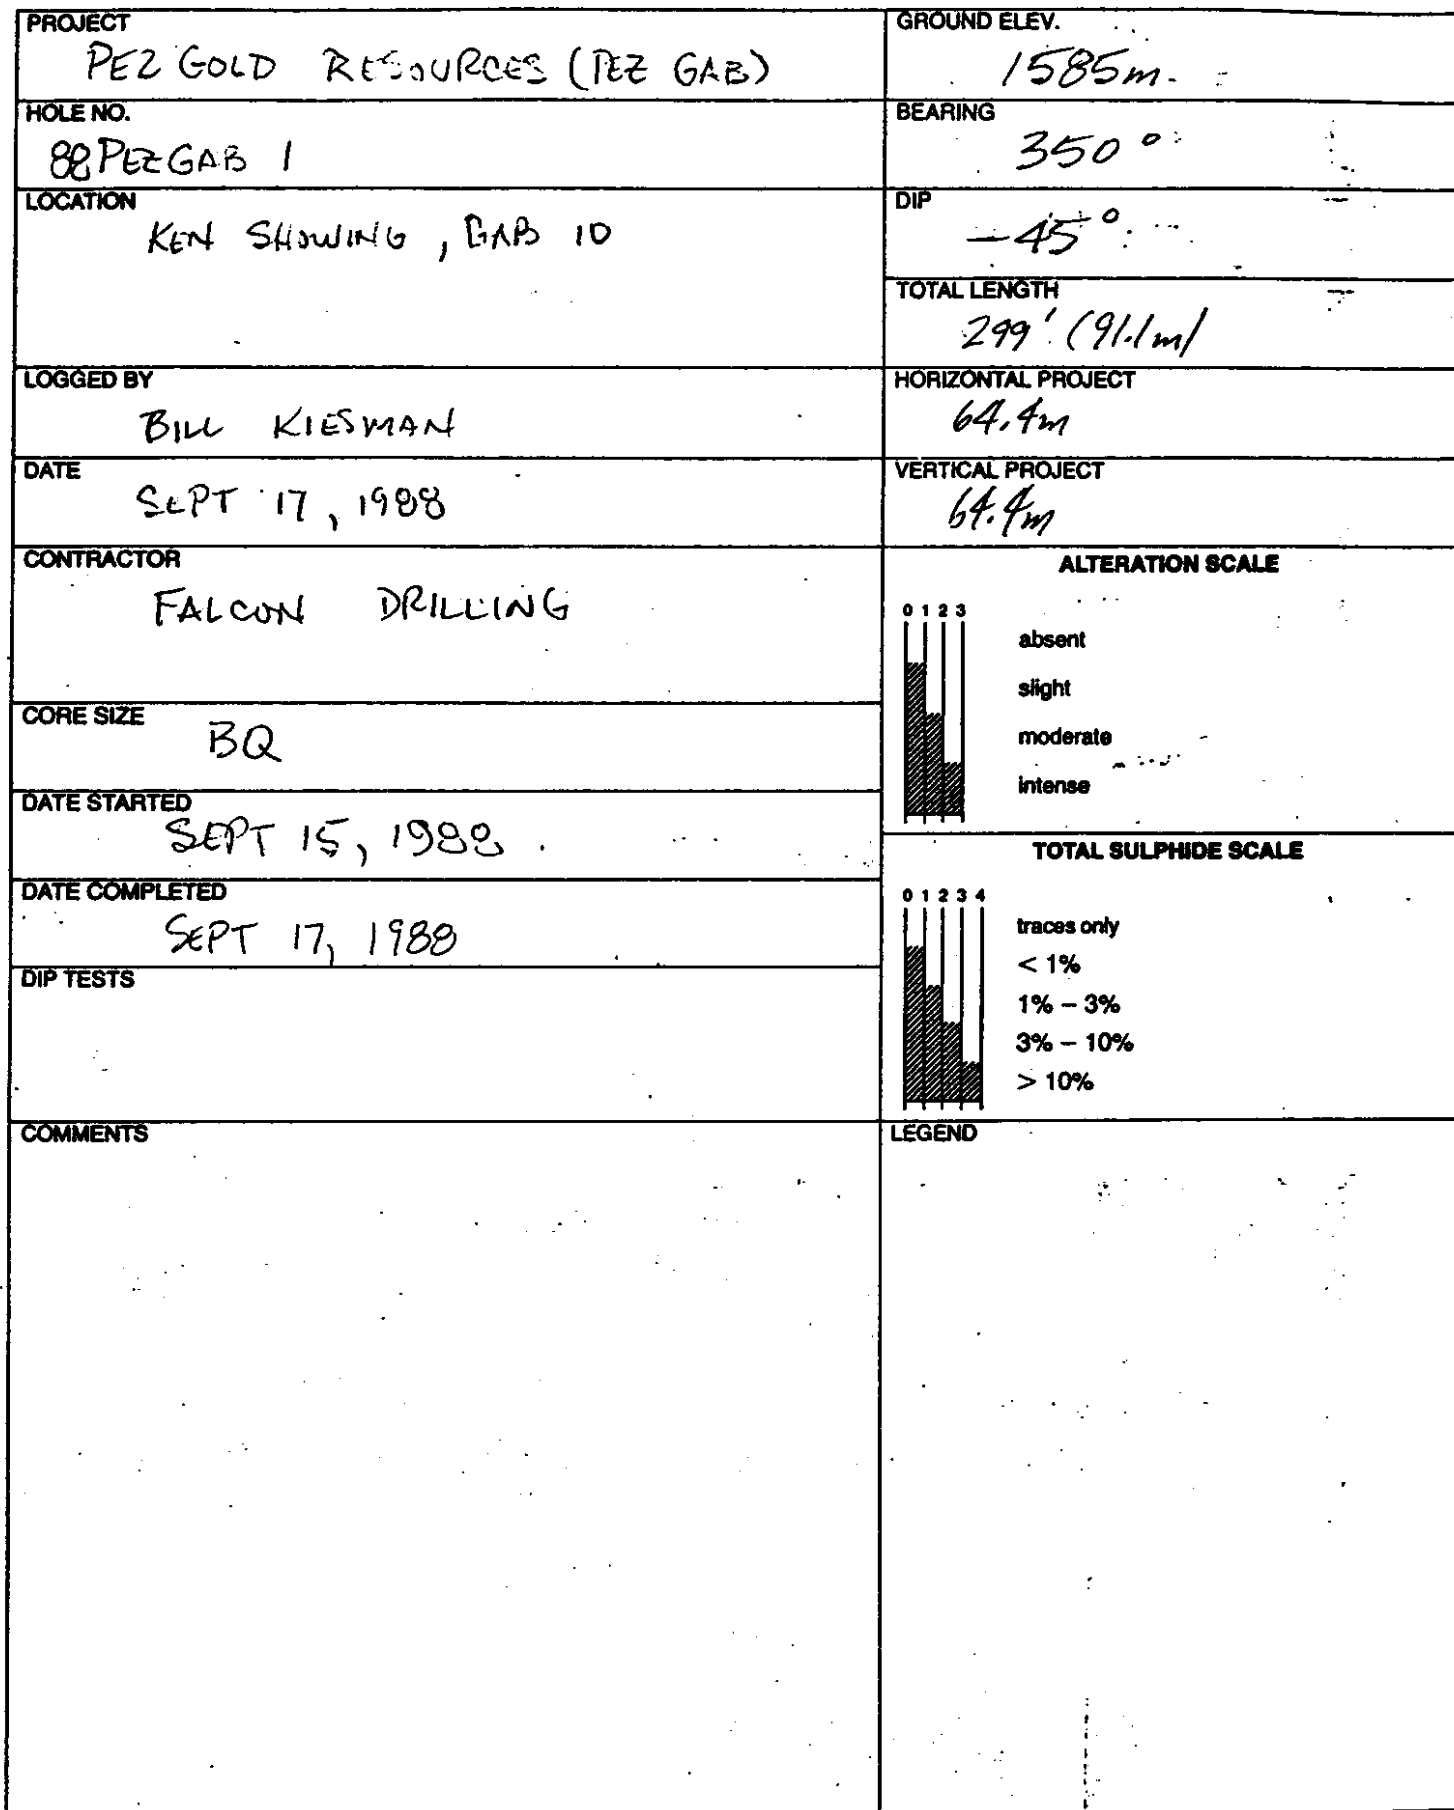 PROJECT
PEZ GOLD RESOURCES (PEZ GAB)
HOLE NO.
88PEZGAB 1
LOCATION
KEN SHOWING, GAB 10
LOGGED BY
BILL KIESMAN
DATE
SEPT 17, 1988
CONTRACTOR
FALCON DRILLING
CORE SIZE
BQ
DATE STARTED
SEPT 15, 1988.
DATE COMPLETED
SEPT 17, 1988
DIP TESTS
COMMENTS
GROUND ELEV.
1585m.
BEARING
350°
DIP
-45°
TOTAL LENGTH
299' (91.1m)
HORIZONTAL PROJECT
64.4m
VERTICAL PROJECT
64.4m
ALTERATION SCALE
0 1 2 3
absent
slight
moderate
intense
TOTAL SULPHIDE SCALE
0 1 2 3 4
traces only
< 1%
1% – 3%
3% – 10%
> 10%
LEGEND